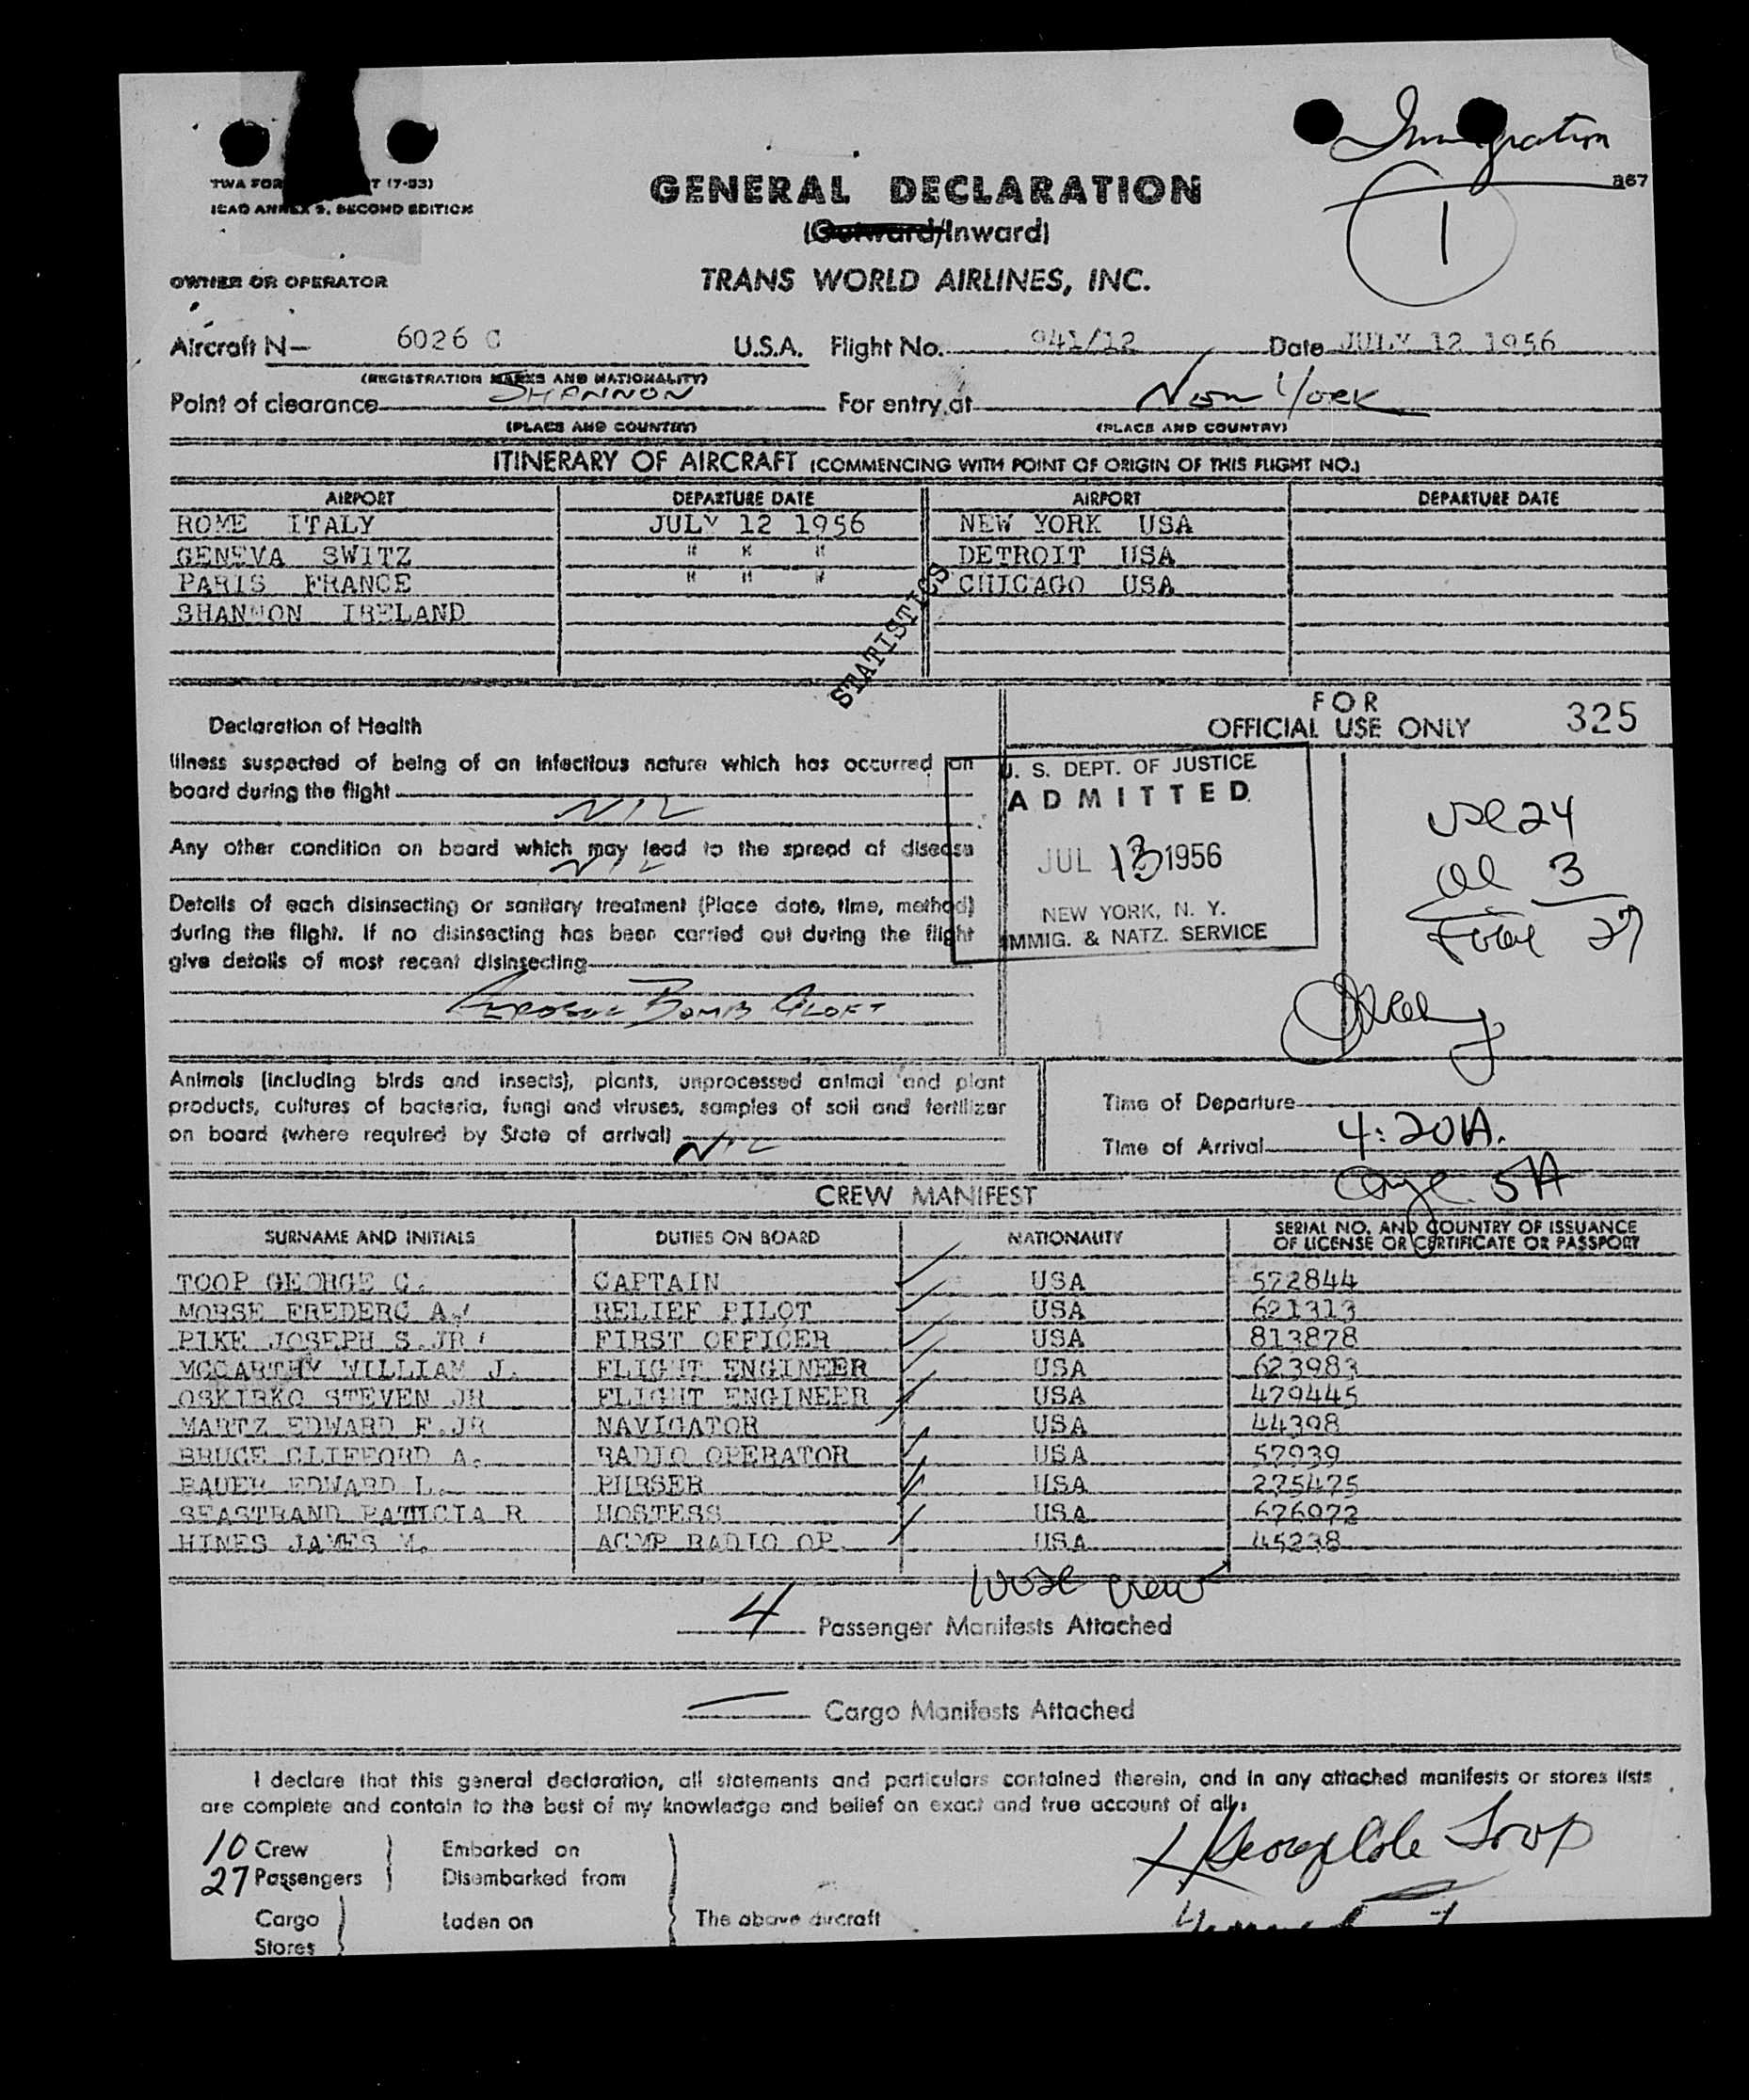 Immigration
1
TWA FOR T (7-53)
ICAO ANNEX 9, SECOND EDITION
367
GENERAL DECLARATION
(Outward/Inward)
OWNER OR OPERATOR
TRANS WORLD AIRLINES, INC.
Aircraft N— 6026 C U.S.A. Flight No. 941/12 Date JULY 12 1956
(REGISTRATION MARKS AND NATIONALITY)
Point of clearance SHANNON For entry at New York
(PLACE AND COUNTRY) (PLACE AND COUNTRY)
ITINERARY OF AIRCRAFT (COMMENCING WITH POINT OF ORIGIN OF THIS FLIGHT NO.)
AIRPORT DEPARTURE DATE AIRPORT DEPARTURE DATE
ROME ITALY JULY 12 1956 NEW YORK USA
GENEVA SWITZ " " " DETROIT USA
PARIS FRANCE " " " CHICAGO USA
SHANNON IRELAND
STATISTICS
FOR
OFFICIAL USE ONLY 325
Declaration of Health
Illness suspected of being of an infectious nature which has occurred on
board during the flight
NIL
Any other condition on board which may lead to the spread of disease
NIL
Details of each disinsecting or sanitary treatment (Place date, time, method)
during the flight. If no disinsecting has been carried out during the flight
give details of most recent disinsecting
AEROSOL BOMB ALOFT
U. S. DEPT. OF JUSTICE
ADMITTED
JUL 13 1956
NEW YORK, N. Y.
IMMIG. & NATZ. SERVICE
24
al 3
Total 27
Animals (including birds and insects), plants, unprocessed animal and plant
products, cultures of bacteria, fungi and viruses, samples of soil and fertilizer
on board (where required by State of arrival)
NIL
Time of Departure
Time of Arrival 4:20A.
5A
CREW MANIFEST
SURNAME AND INITIALS DUTIES ON BOARD NATIONALITY SERIAL NO. AND COUNTRY OF ISSUANCE
OF LICENSE OR CERTIFICATE OR PASSPORT
TOOP GEORGE C. CAPTAIN USA 572844
MORSE FREDERC A. RELIEF PILOT USA 621313
PIKE JOSEPH S.JR FIRST OFFICER USA 813878
MCCARTHY WILLIAM J. FLIGHT ENGINEER USA 623983
OSKIRKO STEVEN JR FLIGHT ENGINEER USA 479445
MARTZ EDWARD F.JR NAVIGATOR USA 44398
BRUCE CLIFFORD A. RADIO OPERATOR USA 57939
BAUER EDWARD L. PURSER USA 275475
SEASTRAND PATTICIA R HOSTESS USA 676972
HINES JAMES M. ACMP RADIO OP. USA 45238
10 USC crew
4 Passenger Manifests Attached
Cargo Manifests Attached
I declare that this general declaration, all statements and particulars contained therein, and in any attached manifests or stores lists
are complete and contain to the best of my knowledge and belief an exact and true account of all:
10 Crew Embarked on
27 Passengers Disembarked from
George Cole Toop
Cargo Laden on The above aircraft
Stores